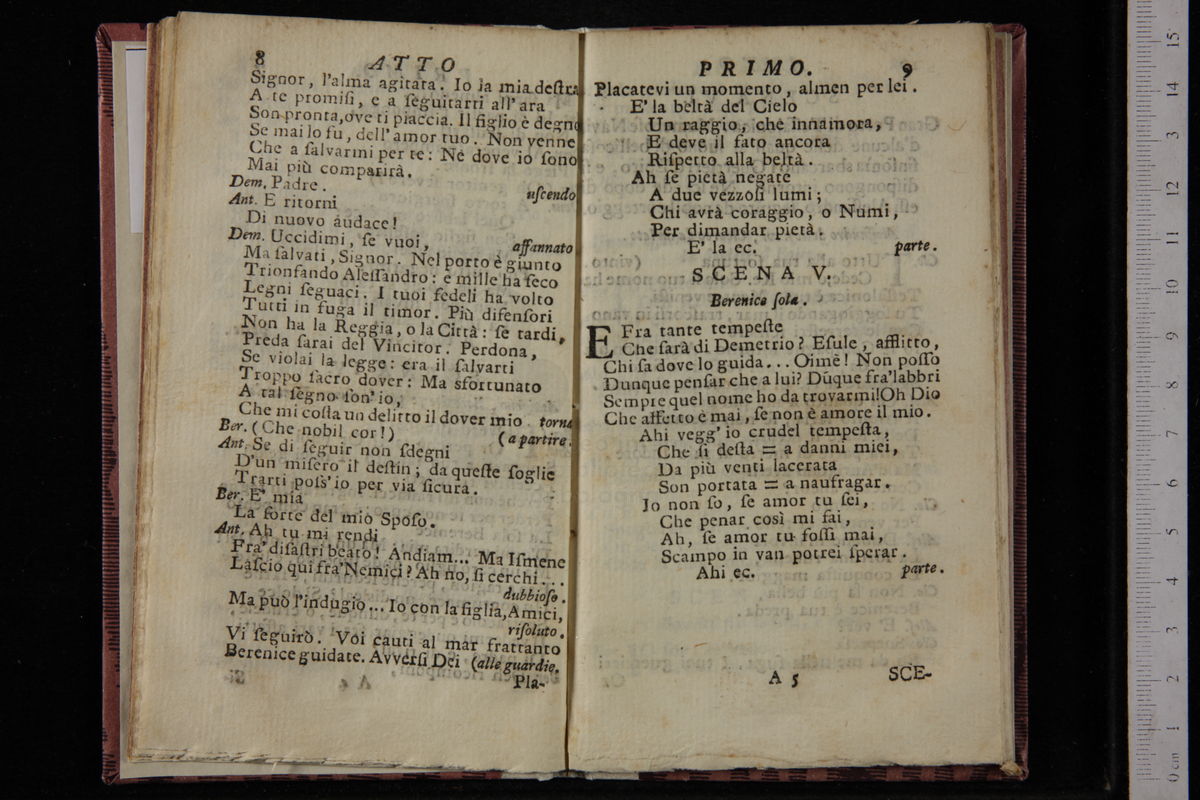 8 ATTO
Signor, l'alma agitata. Io la mia destra
A te promisi, e a seguitarti all' ara
Son pronta, ove ti piaccia. Il figlio è degno
Se mai lo fu, dell' amor tuo. Non venne
Che a salvarmi per te: Nè dove io sono
Mai più comparirà.
Dem. Padre. uscendo
Ant. E ritorni
Di nuovo audace!
Dem. Uccidimi, se vuoi, affannato
Ma salvati, Signor. Nel porto è giunto
Trionfando Alessandro: e mille ha seco
Legni seguaci. I tuoi fedeli ha volto
Tutti in fuga il timor. Più difensori
Non ha la Reggia, o la Città: se tardi,
Preda sarai del Vincitor. Perdona,
Se violai la legge: era il salvarti
Troppo sacro dover: Ma sfortunato
A tal segno son' io,
Che mi costa un delitto il dover mio. torna
Ber. (Che nobil cor!) (a partire.
Ant. Se di seguir non sdegni
D'un misero il destin; da queste soglie
Trarti poss' io per via sicura.
Ber. E' mia
La sorte del mio Sposo.
Ant. Ah tu mi rendi
Fra' disastri beato! Andiam... Ma Ismene
Lascio qui fra' Nemici? Ah no, si cerchi...
dubbioso.
Ma può l'indugio... Io con la figlia, Amici,
risoluto.
Vi seguirò. Voi cauti al mar frattanto
Berenice guidate. Avversi Dei (alle guardie.
Pla-
PRIMO. 9
Placatevi un momento, almen per lei.
E' la beltà del Cielo
Un raggio, che innamora,
E deve il fato ancora
Rispetto alla beltà.
Ah se pietà negate
A due vezzosi lumi;
Chi avrà coraggio, o Numi,
Per dimandar pietà.
E' la ec. parte.
SCENA V.
Berenice sola.
E Fra tante tempeste
Che sarà di Demetrio? Esule, afflitto,
Chi sa dove lo guida... Oimè! Non posso
Dunque pensar che a lui? Dūque fra' labbri
Sempre quel nome ho da trovarmi! Oh Dio
Che affetto è mai, se non è amore il mio.
Ahi vegg' io crudel tempesta,
Che si desta = a danni miei,
Da più venti lacerata
Son portata = a naufragar.
Io non so, se amor tu sei,
Che penar così mi fai,
Ah, se amor tu fossi mai,
Scampo in van potrei sperar.
Ahi ec. parte.
A 5 SCE-
0 cm 1 2 3 4 5 6 7 8 9 10 11 12 13 14 15